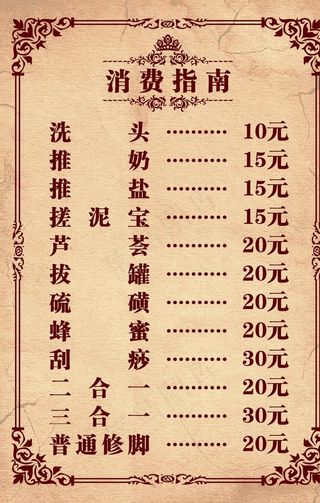 消费指南
洗头 ·········· 10元
推奶 ·········· 15元
推盐 ·········· 15元
搓泥宝 ·········· 15元
芦荟 ·········· 20元
拔罐 ·········· 20元
硫磺 ·········· 20元
蜂蜜 ·········· 20元
刮痧 ·········· 30元
二合一 ·········· 20元
三合一 ·········· 30元
普通修脚 ·········· 20元